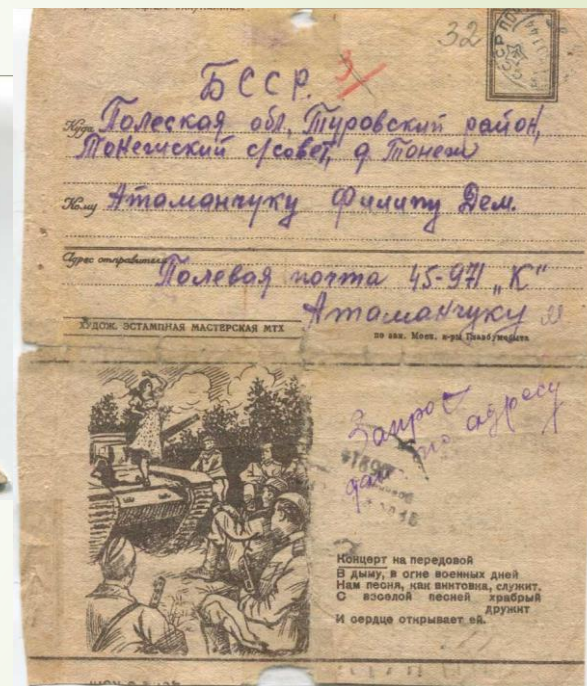 32
БССР.
Куда Полеская обл, Туровский район,
Тонежский с/совет, д. Тонеж
Кому Атаманчуку Филипу Дем.
Адрес отправителя
Полевая почта 45-971 „К"
Атаманчуку
ХУДОЖ. ЭСТАМПНАЯ МАСТЕРСКАЯ МТХ
по зак. Моск. к-ры Главбумсбыта
Запрос
дан по адресу
Концерт на передовой
В дыму, в огне военных дней
Нам песня, как винтовка, служит.
С веселой песней храбрый
дружит
И сердце открывает ей.